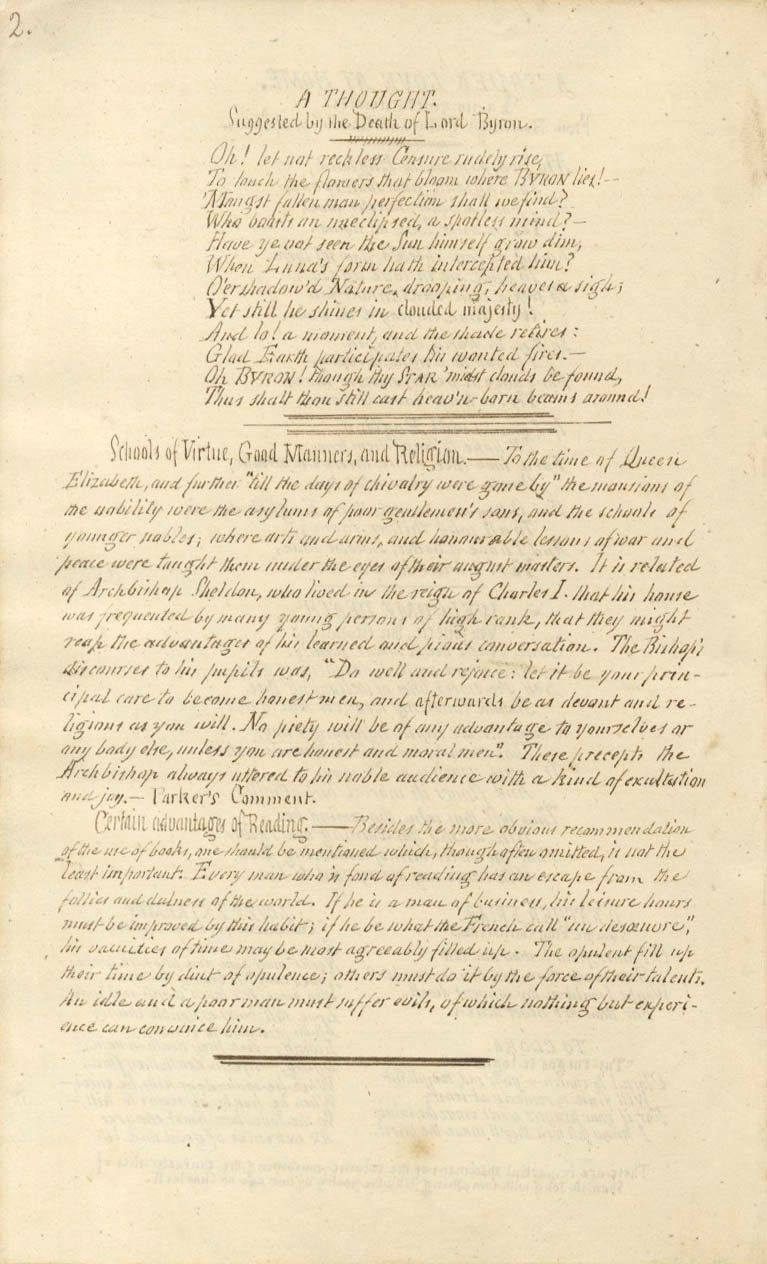 2.
A THOUGHT.
Suggested by the Death of Lord Byron.
Oh! let not reckless Censure rudely rise,
To touch the flowers that bloom where BYRON lies!--
'Mongst fallen man perfection shall we find?
Who boasts an uneclipsed, a spotless mind?—
Have ye not seen the Sun himself grow dim,
When Luna's form hath intercepted him?
O'ershadow'd Nature, drooping, heaves a sigh;
Yet still he shines in clouded majesty!
And lo! a moment, and the shade retires:
Glad Earth participates his wonted fires.—
Oh BYRON! though thy STAR 'midst clouds be found,
Thus shalt thou still cast heav'n-born beams around!
Schools of Virtue, Good Manners, and Religion.—To the time of Queen
Elizabeth, and further "till the days of chivalry were gone by" the mansions of
the nobility were the asylums of poor gentlemen's sons, and the schools of
younger nobles; where arts and arms, and honourable lessons of war and
peace were taught them under the eyes of their august masters. It is related
of Archbishop Sheldon, who lived in the reign of Charles I. that his house
was frequented by many young persons of high rank, that they might
reap the advantages of his learned and pious conversation. The Bishop's
discourses to his pupils was, "Do well and rejoice: let it be your prin-
cipal care to become honest men, and afterwards be as devout and re-
ligious as you will. No piety will be of any advantage to yourselves or
any body else, unless you are honest and moral men". These precepts the
Archbishop always uttered to his noble audience with a kind of exultation
and joy.— Parker's Comment.
Certain advantages of Reading.—Besides the more obvious recommendation
of the use of books, one should be mentioned which, though often omitted, is not the
least important. Every man who is fond of reading has an escape from the
follies and dulness of the world. If he is a man of business, his leisure hours
must be improved by this habit; if he be what the French call "un desœuvre",
his vacuities of time may be most agreeably filled up. The opulent fill up
their time by dint of opulence; others must do it by the force of their talents.
An idle and a poor man must suffer evils, of which nothing but experi-
ence can convince him.